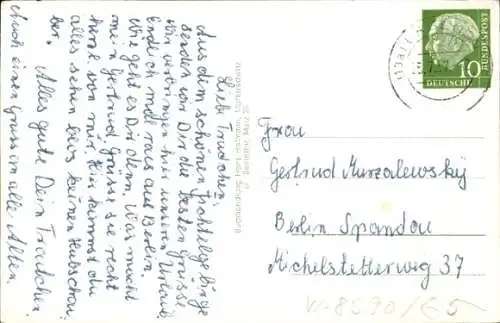 Liebe Trudchen.
Aus dem schönen Fichtelgebirge
senden wir Dir die besten Grüsse
Wir verbringen hier unseren Urlaub.
Endlich mal raus aus Berlin.
Wie geht es Dir denn, was macht
mein Gertrud, Grüsse sie recht
herzl. von mir. Hier kannst du
alles sehen bloß keinen Hubschrau-
ber. Alles gute Dein Trautchen
Auch einen Gruss an alle Alten.
Buchhandlung
10
DEUTSCHE
BUNDESPOST
Frau
Gertrud Murzalewsky
Berlin Spandau
Michelstetterweg 37
W-8590/65